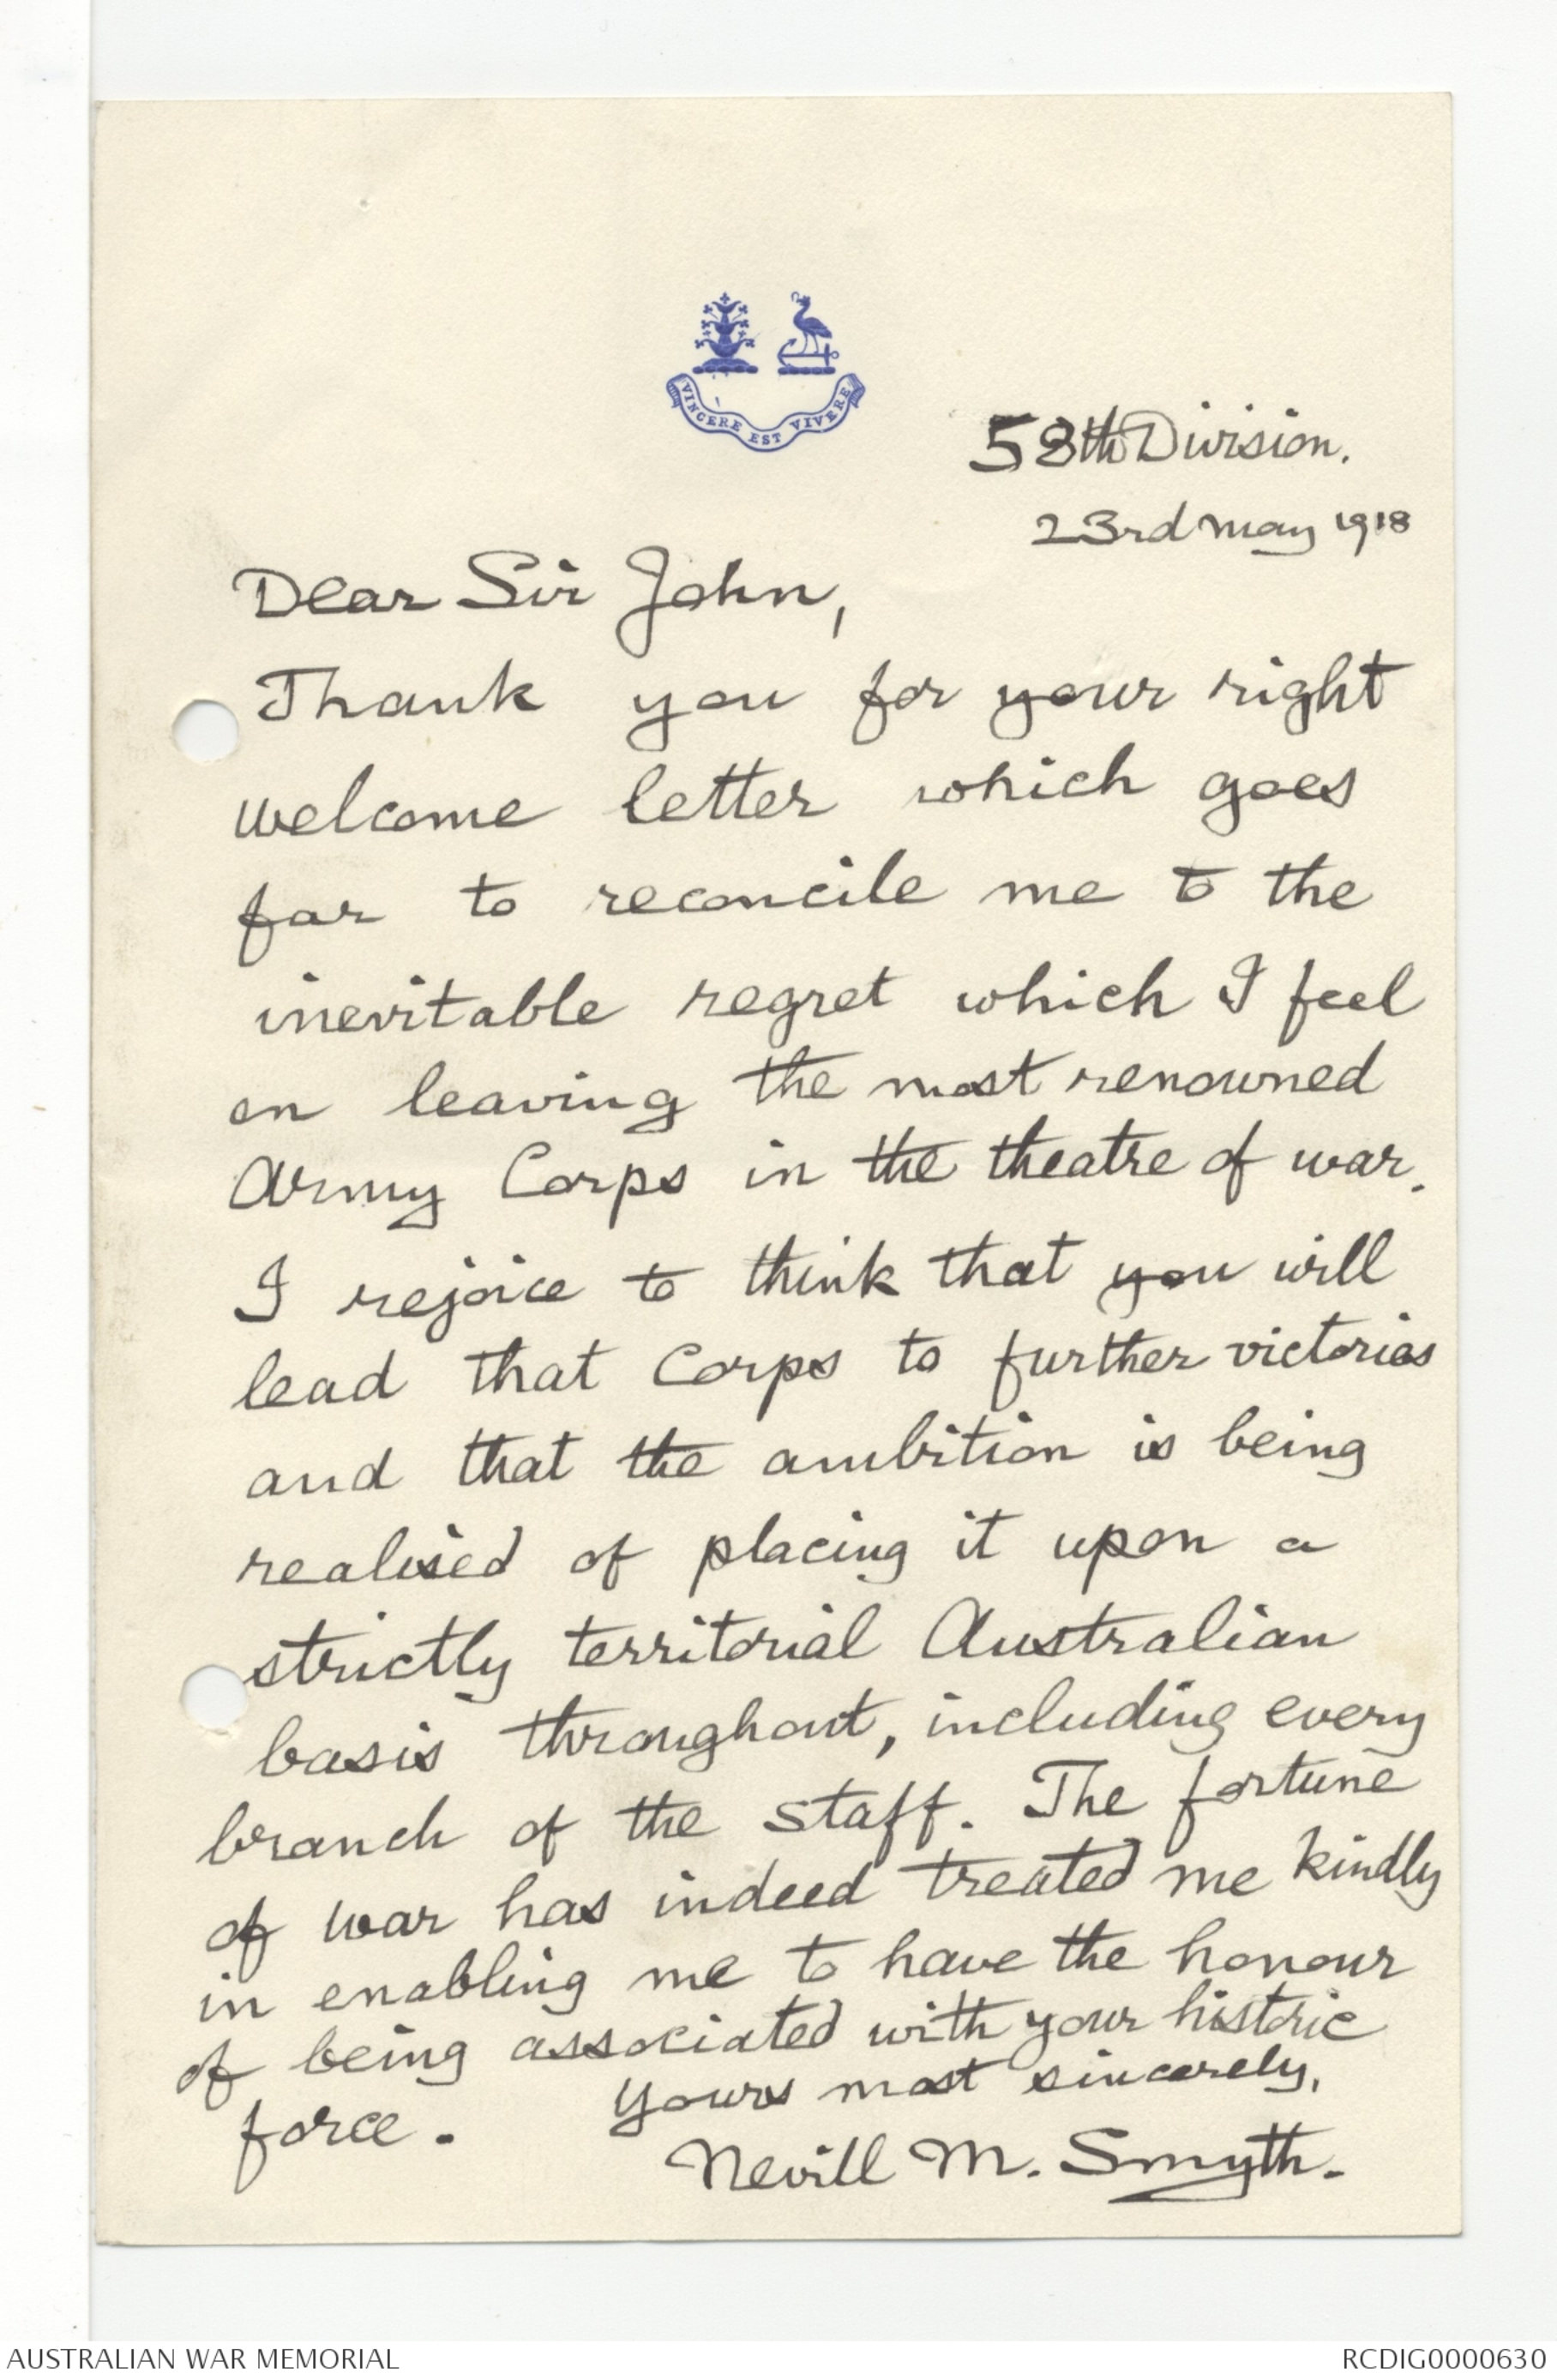 VINCERE EST VIVERE
58th Division.
23rd May 1918
Dear Sir John,
Thank you for your right
welcome letter which goes
far to reconcile me to the
inevitable regret which I feel
on leaving the most renowned
Army Corps in the theatre of war.
I rejoice to think that you will
lead that Corps to further victories
and that the ambition is being
realised of placing it upon a
strictly territorial Australian
basis throughout, including every
branch of the staff. The fortune
of war has indeed treated me kindly
in enabling me to have the honour
of being associated with your historic
force. Yours most sincerely,
Nevill M. Smyth.
AUSTRALIAN WAR MEMORIAL
RCDIG0000630